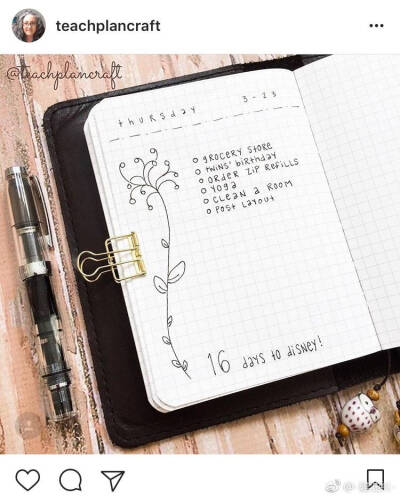 teachplancraft
@teachplancraft
thursday 3-23
GROCERY STORE
TWINS' birthday
ORDER ZIP REFILLS
YOGA
CLEAN A ROOM
POST LAYOUT
16 days to disney!